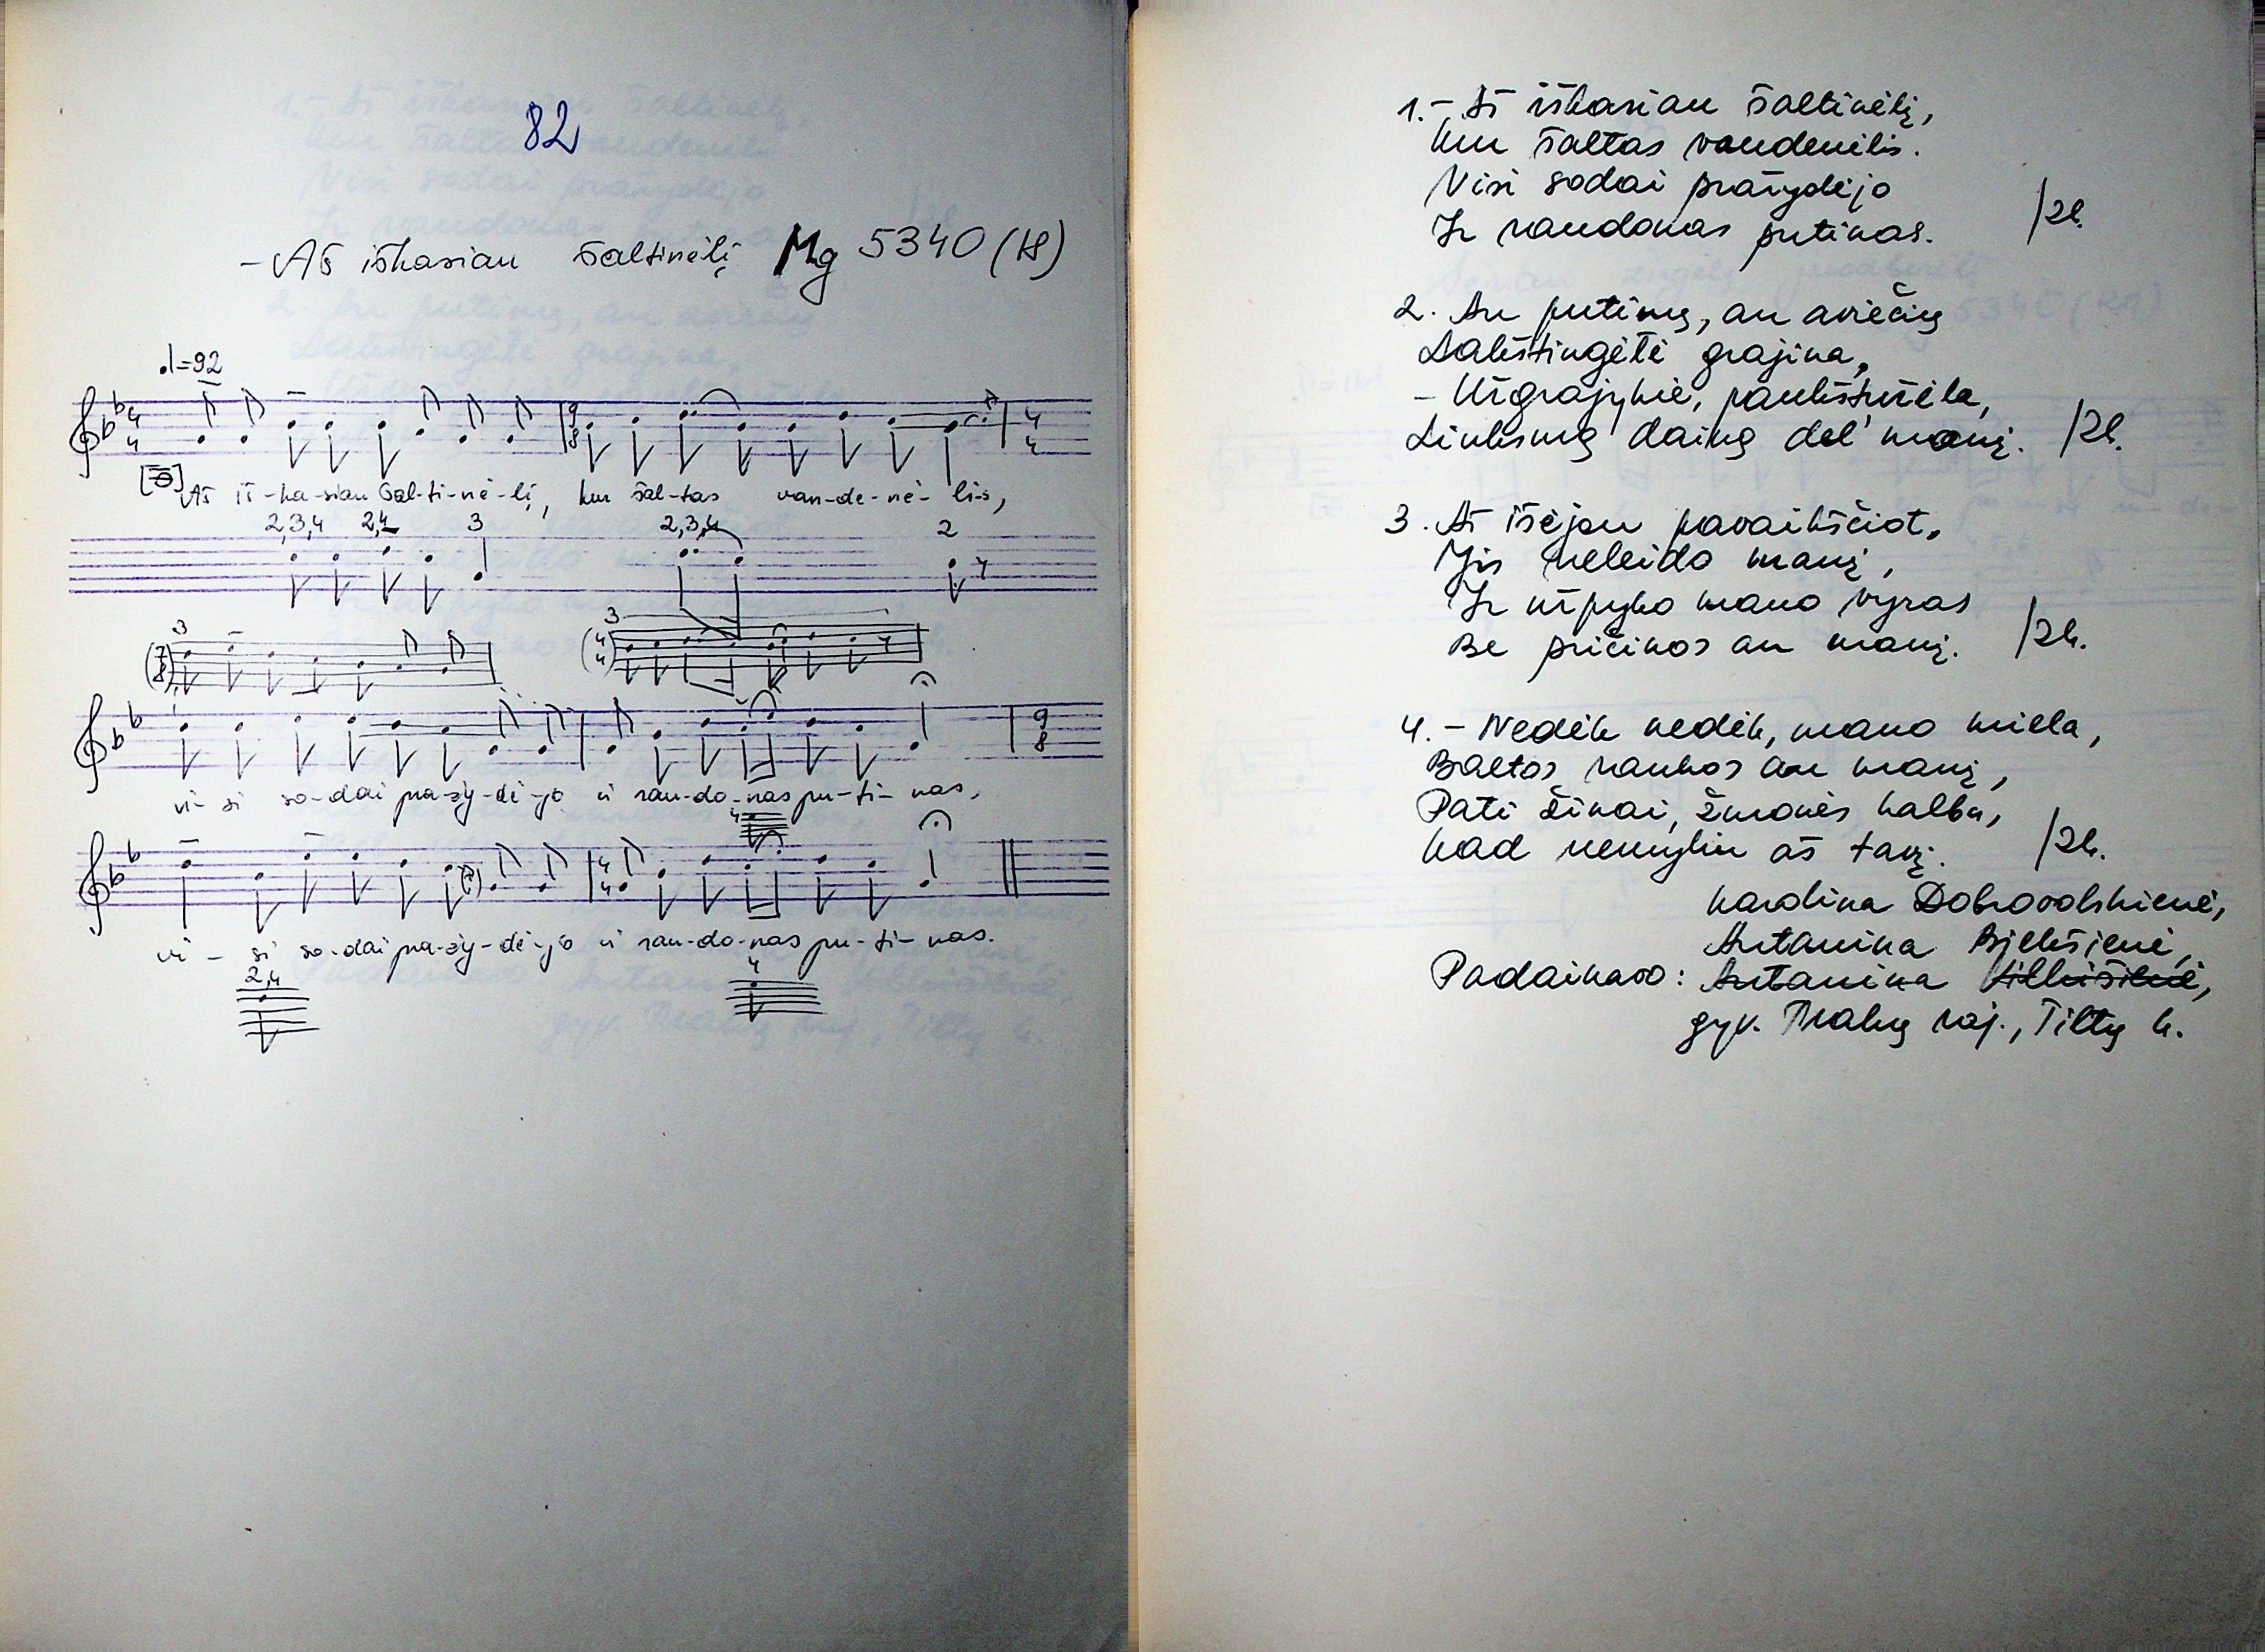 82
– Aš iškasiau šaltinėlį Mg 5340 (18)
♩=92
Aš iš-ka-siau šal-ti-nė-lį, kur šal-tas van-de-nė-lis,
2,3,4 2,4 3 2,3,4 2
3 3
vi-si so-dai pra-žy-dė-jo ir rau-do-nas pu-ti-nas,
4
vi-si so-dai pra-žy-dė-jo ir rau-do-nas pu-ti-nas.
2,4 4
1. – Aš iškasiau šaltinėlį,
Kur šaltas vandenėlis.
Visi sodai pražydėjo
Ir raudonas putinas. /2k.
2. An putinų, an aviečių
Lakštingėlė grajina,
– Užgrajykie, paukštužėla,
Linksmą dainą dėl' manį. /2k.
3. Aš išėjau pavaikščiot,
Jis neleido manį,
Ir užpyko mano vyras
Be pričinos an manį. /2k.
4. – Nedėk nedėk, mano miela,
Baltos rankos an manį,
Pati žinai, žmonės kalba,
Kad nemyliu aš tavį. /2k.
Karolina Dobrovolskienė,
Antanina Bjelkšienė,
Padainavo: Antanina
gyv. Trakų raj., Tiltų k.